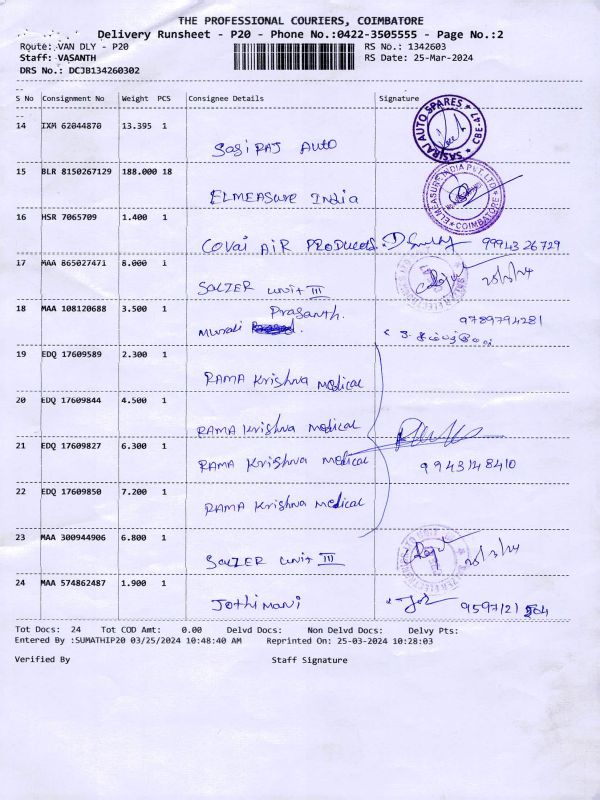 THE PROFESSIONAL COURIERS, COIMBATORE
Delivery Runsheet - P20 - Phone No.:0422-3505555 - Page No.:2
Route: VAN DLY - P20 RS No.: 1342603
Staff: VASANTH RS Date: 25-Mar-2024
DRS No.: DCJB134260302
S No Consignment No Weight PCS Consignee Details Signature
14 IXM 62044870 13.395 1 SASIRAJ AUTO
SASIRAJ AUTO SPARES * CBE-47 *
15 BLR 8150267129 188.000 18 ELMEASURE India
ELMEASURE INDIA PVT. LTD. * COIMBATORE *
16 HSR 7065709 1.400 1 COVAI AIR PRODUCTS. 99943 26729
17 MAA 865027471 8.000 1 SALZER UNIT III
18 MAA 108120688 3.500 1 Murali Prasanth. 9789794281
19 EDQ 17609589 2.300 1 RAMA Krishna Medical
20 EDQ 17609844 4.500 1 RAMA Krishna Medical
21 EDQ 17609827 6.300 1 RAMA Krishna Medical 9943148410
22 EDQ 17609850 7.200 1 RAMA Krishna Medical
23 MAA 300944906 6.800 1 SALZER UNIT III
24 MAA 574862487 1.900 1 Jothimani
Tot Docs: 24 Tot COD Amt: 0.00 Delvd Docs: Non Delvd Docs: Delvy Pts:
Entered By :SUMATHIP20 03/25/2024 10:48:40 AM Reprinted On: 25-03-2024 10:28:03
Verified By Staff Signature